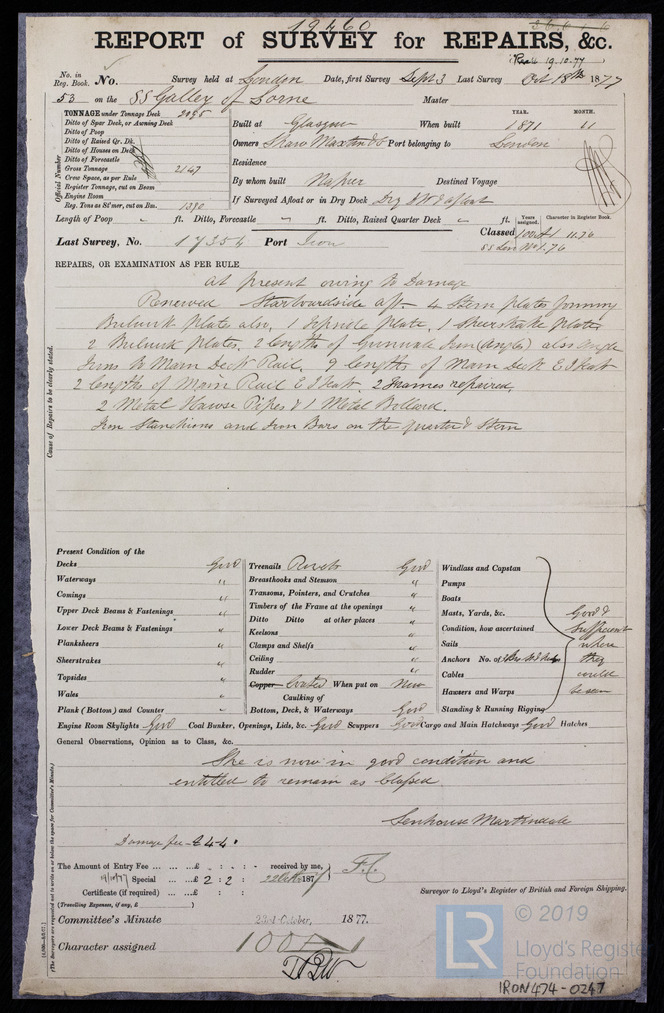 19460
REPORT of SURVEY for REPAIRS, &c.
19.10.77
No. in Reg. Book. No. Survey held at London Date, first Survey Sept 3 Last Survey Oct 18th 1877
53 on the SS Galley of Lorne Master
TONNAGE under Tonnage Deck 2095
Ditto of Spar Deck, or Awning Deck
Ditto of Poop
Ditto of Raised Qr. Dk.
Ditto of Houses on Deck
Ditto of Forecastle
Gross Tonnage 2147
Crew Space, as per Rule
Register Tonnage, cut on Beam
Engine Room
Reg. Tons as St'mer, cut on Bm. 1380
Official Number
YEAR. MONTH.
Built at Glasgow When built 1871 11
Owners Shaw Maxton & Co Port belonging to London
Residence
By whom built Napier Destined Voyage
If Surveyed Afloat or in Dry Dock Dry D W & afloat
Length of Poop " ft. Ditto, Forecastle " ft. Ditto, Raised Quarter Deck " ft.
Years assigned. Character in Register Book.
Classed 100A1 11.76
SS Lon No 1.76
Last Survey, No. 17354 Port Iron
REPAIRS, OR EXAMINATION AS PER RULE
at present owing to Damage
Renewed Starboardside aft 4 Stern plates forming
Bulwark plate also, 1 Topside plate, 1 Sheerstrake plate
2 Bulwark plates, 2 lengths of Gunwale Iron (Angle) also angle
Irons to Main Deck Rail. 9 lengths of Main Deck E I Teak
2 lengths of Main Rail E I Teak, 2 Frames repaired,
2 Metal Hawse Pipes & 1 Metal Bollard.
Iron Stanchions and Iron Bars on the quarter & Stern
Cause of Repairs to be clearly stated.
Present Condition of the
Decks Good
Waterways "
Comings "
Upper Deck Beams & Fastenings "
Lower Deck Beams & Fastenings "
Planksheers "
Sheerstrakes "
Topsides "
Wales "
Plank (Bottom) and Counter "
Treenails Rivets Good
Breasthooks and Stemson "
Transoms, Pointers, and Crutches "
Timbers of the Frame at the openings "
Ditto Ditto at other places "
Keelsons "
Clamps and Shelfs "
Ceiling "
Rudder "
Copper Coated When put on New
Caulking of
Bottom, Deck, & Waterways Good
Windlass and Capstan
Pumps
Boats
Masts, Yards, &c.
Condition, how ascertained
Sails
Anchors No. of
Cables
Hawsers and Warps
Standing & Running Rigging
Good &
sufficient
where
they
could
be seen
Engine Room Skylights Good Coal Bunker, Openings, Lids, &c. Good Scuppers Good Cargo and Main Hatchways Good Hatches
General Observations, Opinion as to Class, &c.
She is now in good condition and
entitled to remain as Classed
Senhouse Martindale
Damage fee £4.4.
The Amount of Entry Fee ... ... ... £ : : received by me,
19/10/77 Special ... ...£ 2 : 2 : 22 Octr 1877
Certificate (if required) ... ...£
(Travelling Expenses, if any, £ )
Surveyor to Lloyd's Register of British and Foreign Shipping.
Committee's Minute 23rd October, 1877.
Character assigned 100A1
(The Surveyors are requested not to write on or below the space for Committee's Minute.)
LR © 2019
Lloyd's Register
Foundation
IRON474-0247